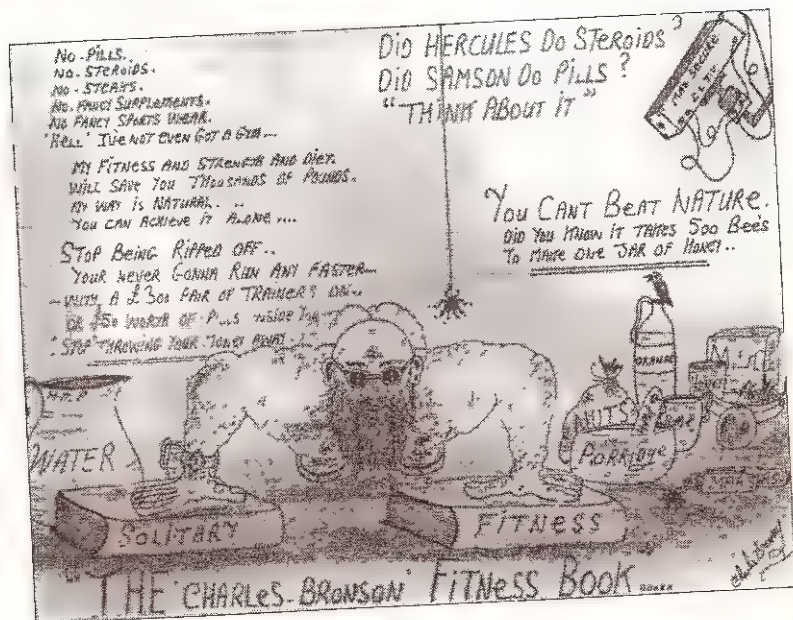 NO-PILLS..
NO-STEROIDS.
NO-STEAKS.
NO FANCY SUPPLEMENTS.
NO FANCY SPORTS WEAR.
'HELL' I'VE NOT EVEN GOT A GYM--
MY FITNESS AND STRENGTH AND DIET.
WILL SAVE YOU THOUSANDS OF POUNDS.
MY WAY IS NATURAL. ..
YOU CAN ACHIEVE IT ALONE ....
STOP BEING RIPPED OFF..
YOUR NEVER GONNA RUN ANY FASTER--
-WITH A £300 PAIR OF TRAINERS ON--
OR £50 WORTH OF INSIDE
'STOP' THROWING YOUR MONEY AWAY-
DID HERCULES DO STEROIDS?
DID SAMSON DO PILLS?
"THINK ABOUT IT"
MAX SECURE
C.C.T.V.
YOU CANT BEAT NATURE.
DID YOU KNOW IT TAKES 500 BEE'S
TO MAKE ONE JAR OF HONEY..
WATER
ORANGE
NUTS
PORRIDGE
SOLITARY
FITNESS
"THE 'CHARLES-BRONSON' FITNESS BOOK".....